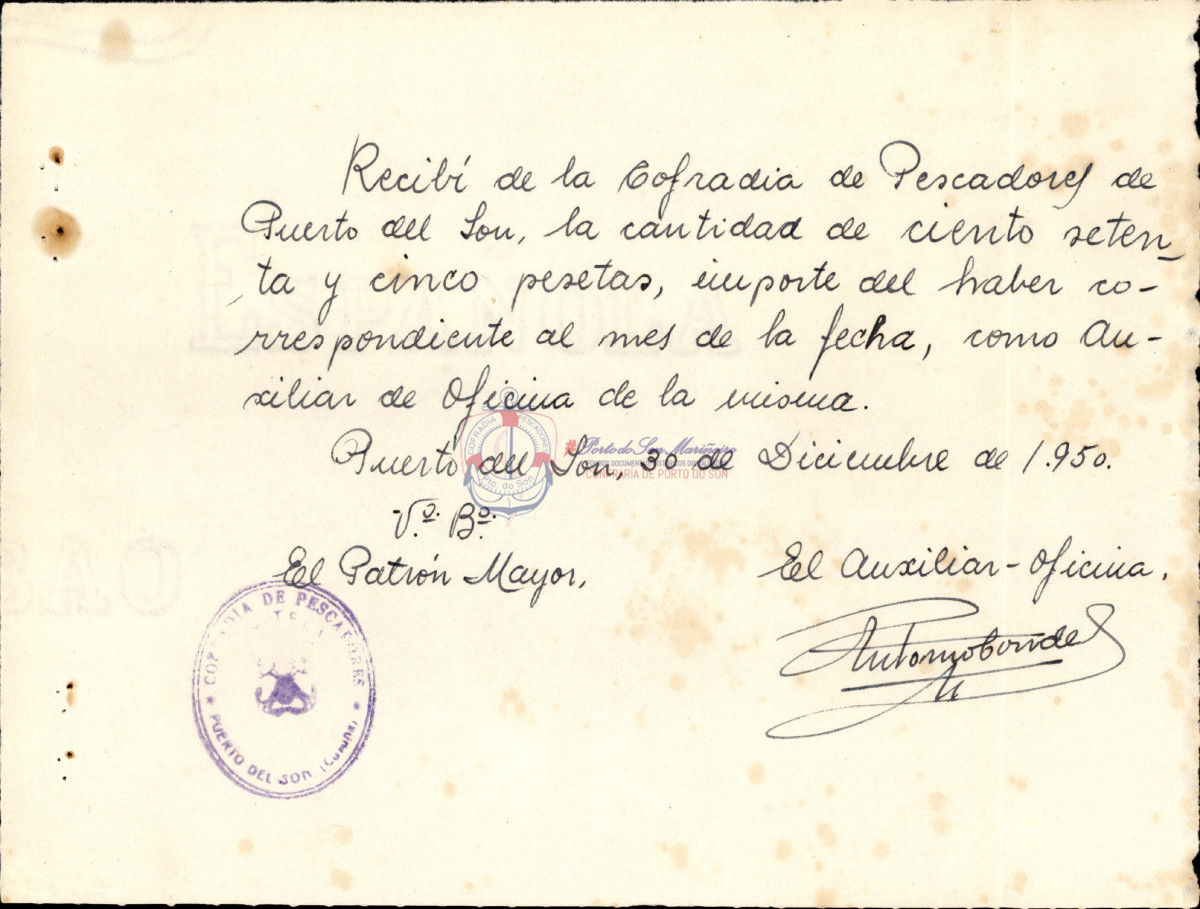 Recibí de la Cofradia de Pescadores de
Puerto del Son, la cantidad de ciento seten
ta y cinco pesetas, importe del haber co-
rrespondiente al mes de la fecha, como Au-
xiliar de Oficina de la misma.
Puerto del Son, 30 de Diciembre de 1.950.
V.º B.º
El Patrón Mayor,
El Auxiliar-Oficina,
COFRADIA DE PESCADORES
PUERTO DEL SON (Coruña)
COFRADIA PESCADORES
Pto. do Son
#Porto do Son Mariñeiro
CONFRARÍA DE PORTO DO SON